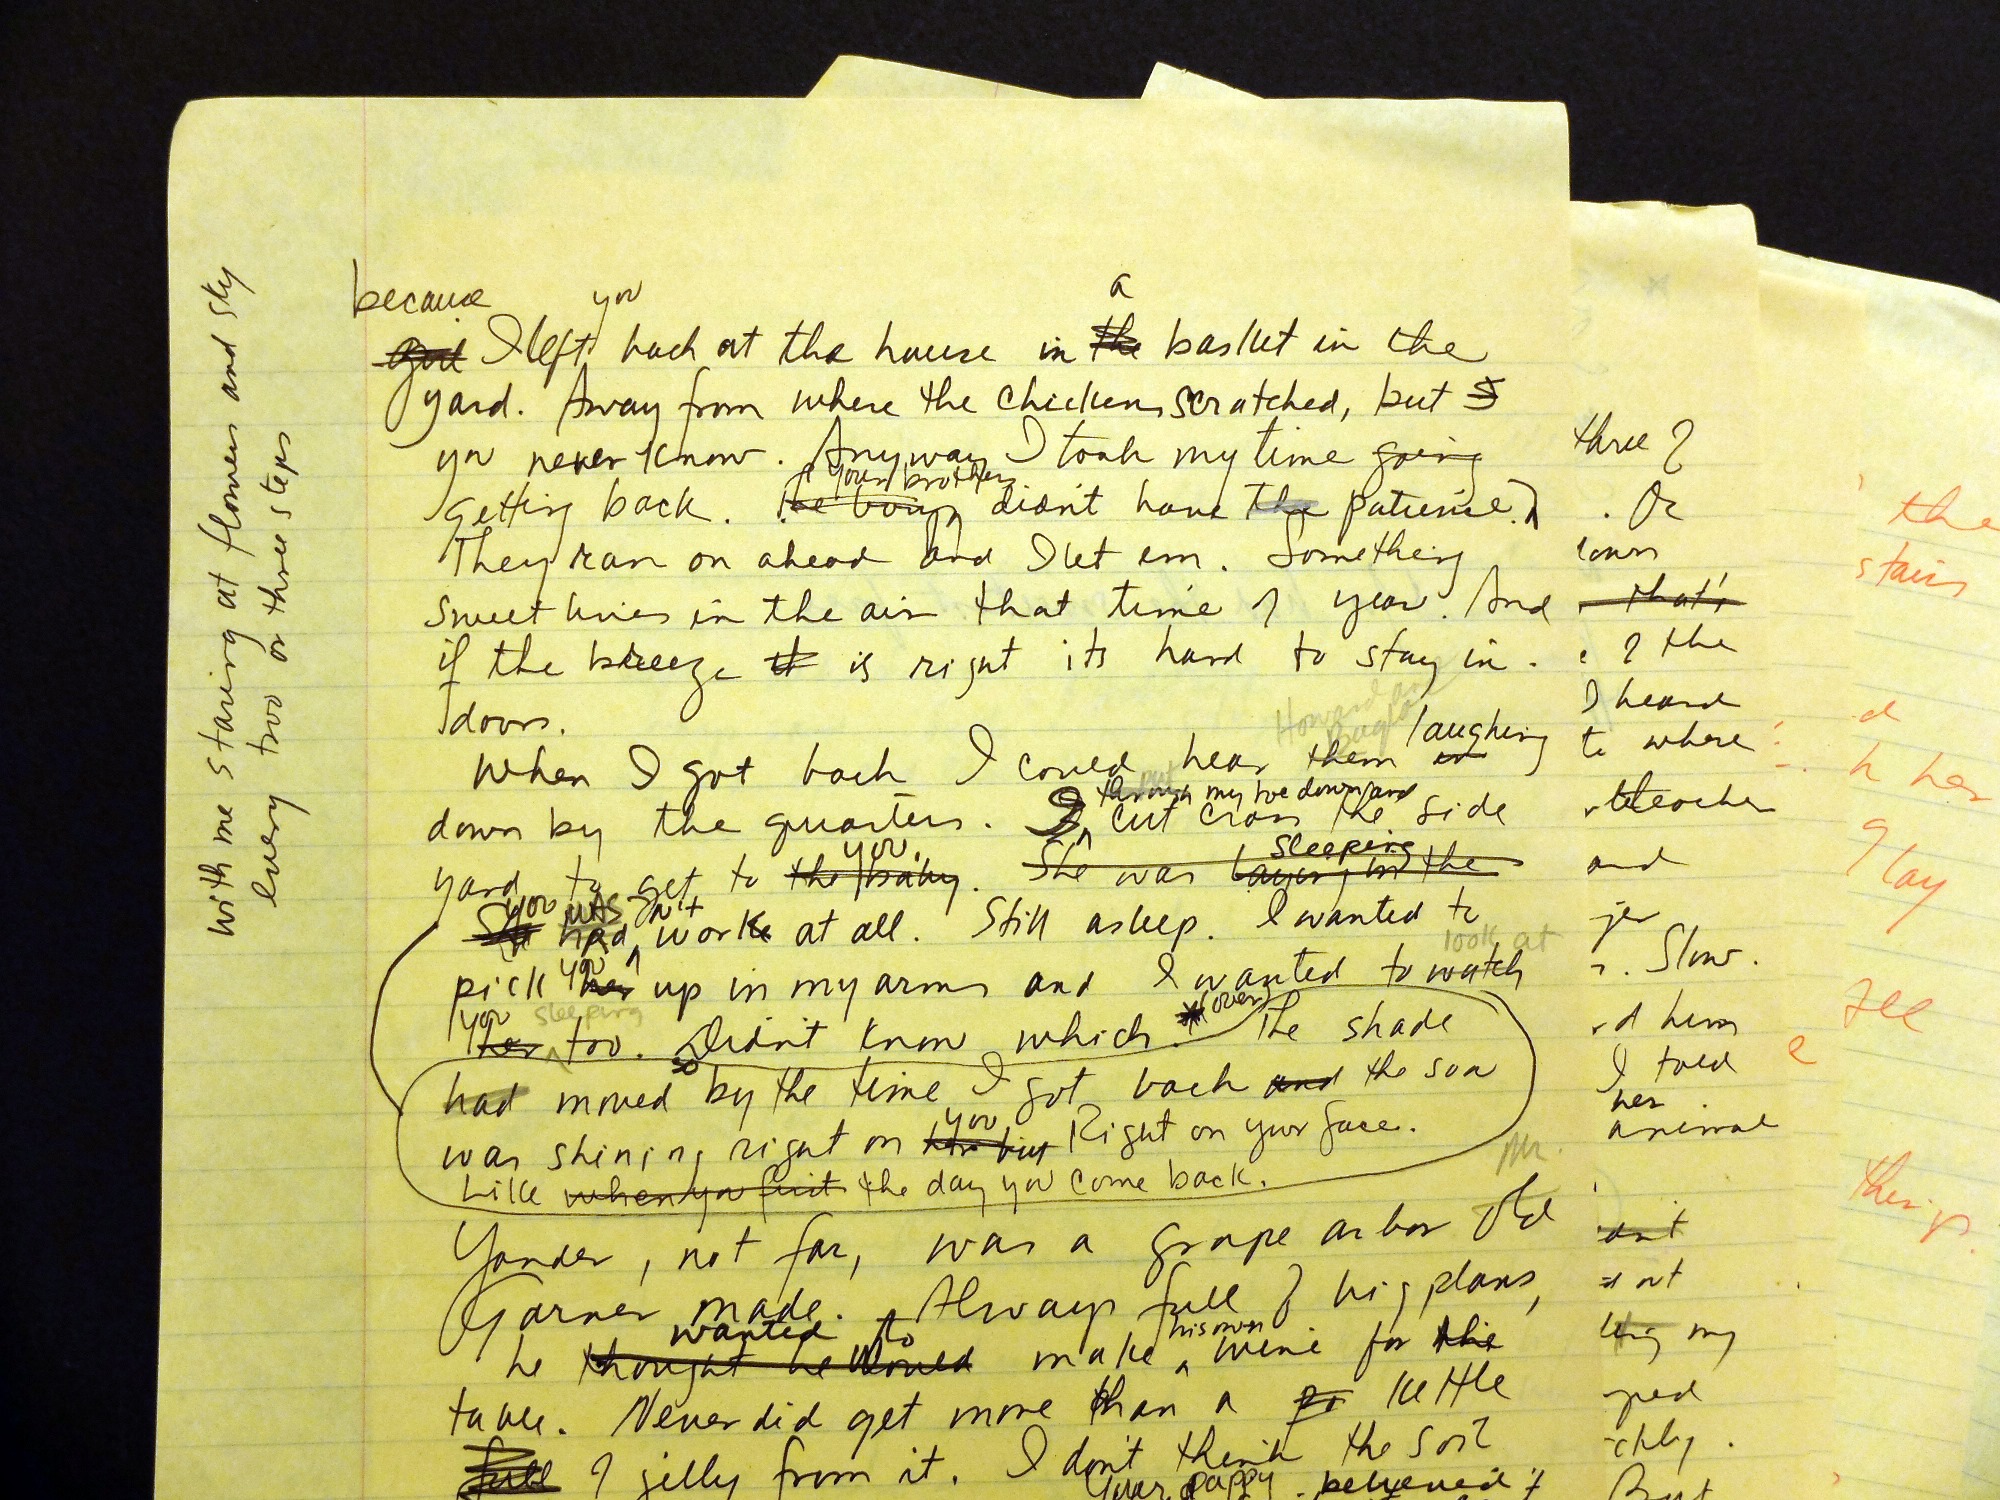 with me staring at flowers and sky
every two or three steps
because you a
girl I left back at the house in the basket in the
yard. Away from where the chickens scratched, but
you never know. Anyway I took my time going
your brothers
getting back. The boys didn't have the patience.
They ran on ahead and I let em. Something
sweet lives in the air that time of year. And
if the breeze it is right its hard to stay in
doors.
Howard and
Buglar
laughing
When I got back I could hear them
put
through my hoe down and
down by the quarters. I cut cross the side
you. sleeping
yard to get to the baby. She was laying in the
you was n't
She had work at all. Still asleep. I wanted to
look at
pick her up in my arms and I wanted to watch
you
you sleeping (over)
her too. Didn't know which. The shade
so
had moved by the time I got back and the sun
you
was shining right on her but Right on your face.
Like when you first the day you come back.
Mr.
Yonder, not far, was a grape arbor Old
Garner made. Always full of big plans,
wanted to his own
he thought he would make wine for the
table. Never did get more than a kettle
full of jelly from it. I don't think the soil
Your pappy believed it
three of
. Or
that's
of the
I heard
to where
teacher
and
. Slow.
d him
I told
her
animal
out
my
But
the
stairs
d
her
lay
see
e
things